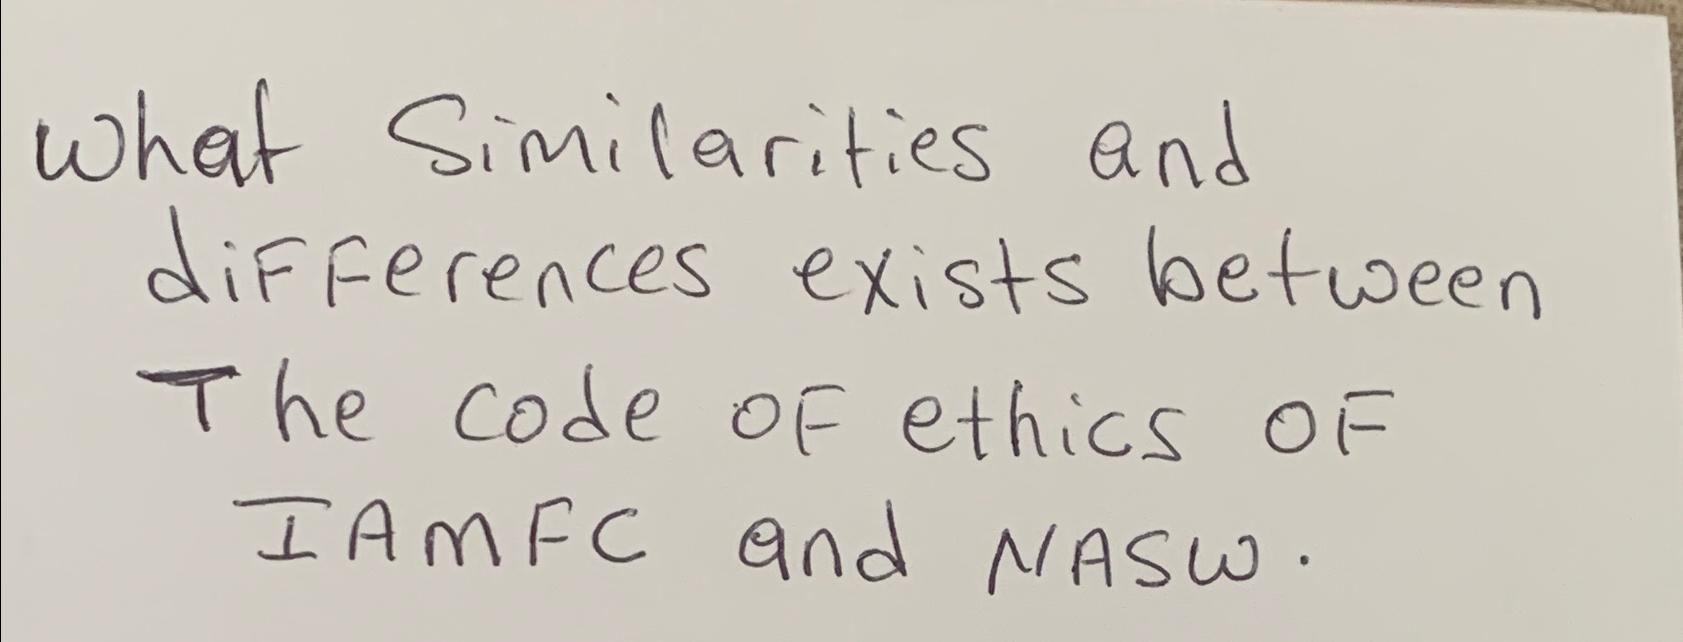 What Similarities and
differences exists between
The code of ethics of
IAMFC and NASW.